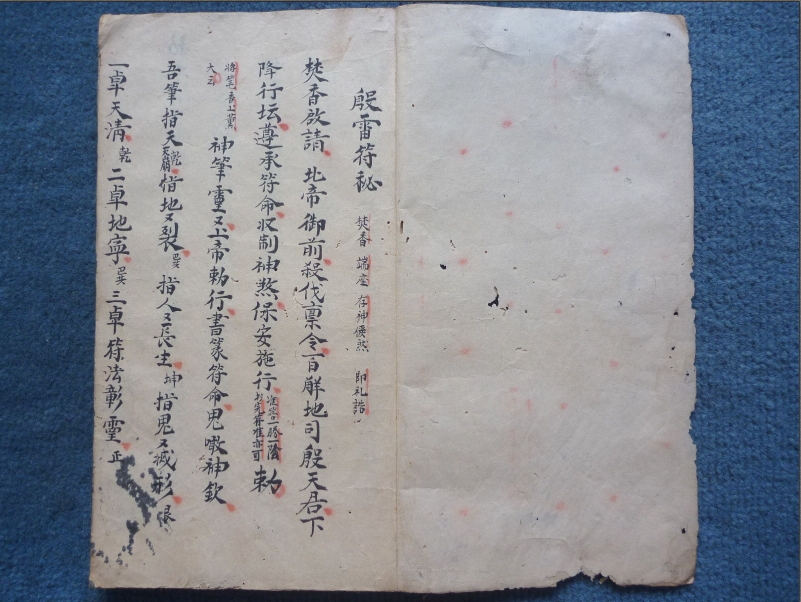 殷雷符秘 焚香 端座 存神 即礼請
焚香啟請 北帝御前殺伐禀令百解地司殷天君下
降行坛遵承符命收制神煞保安施行 勅
神筆靈又上帝勅行書篆符命鬼啾神欽
吾筆指天乾天崩指地又裂巽指人又長生坤指鬼又滅形艮
一卓天清乾二卓地寧巽三卓符法彰靈正